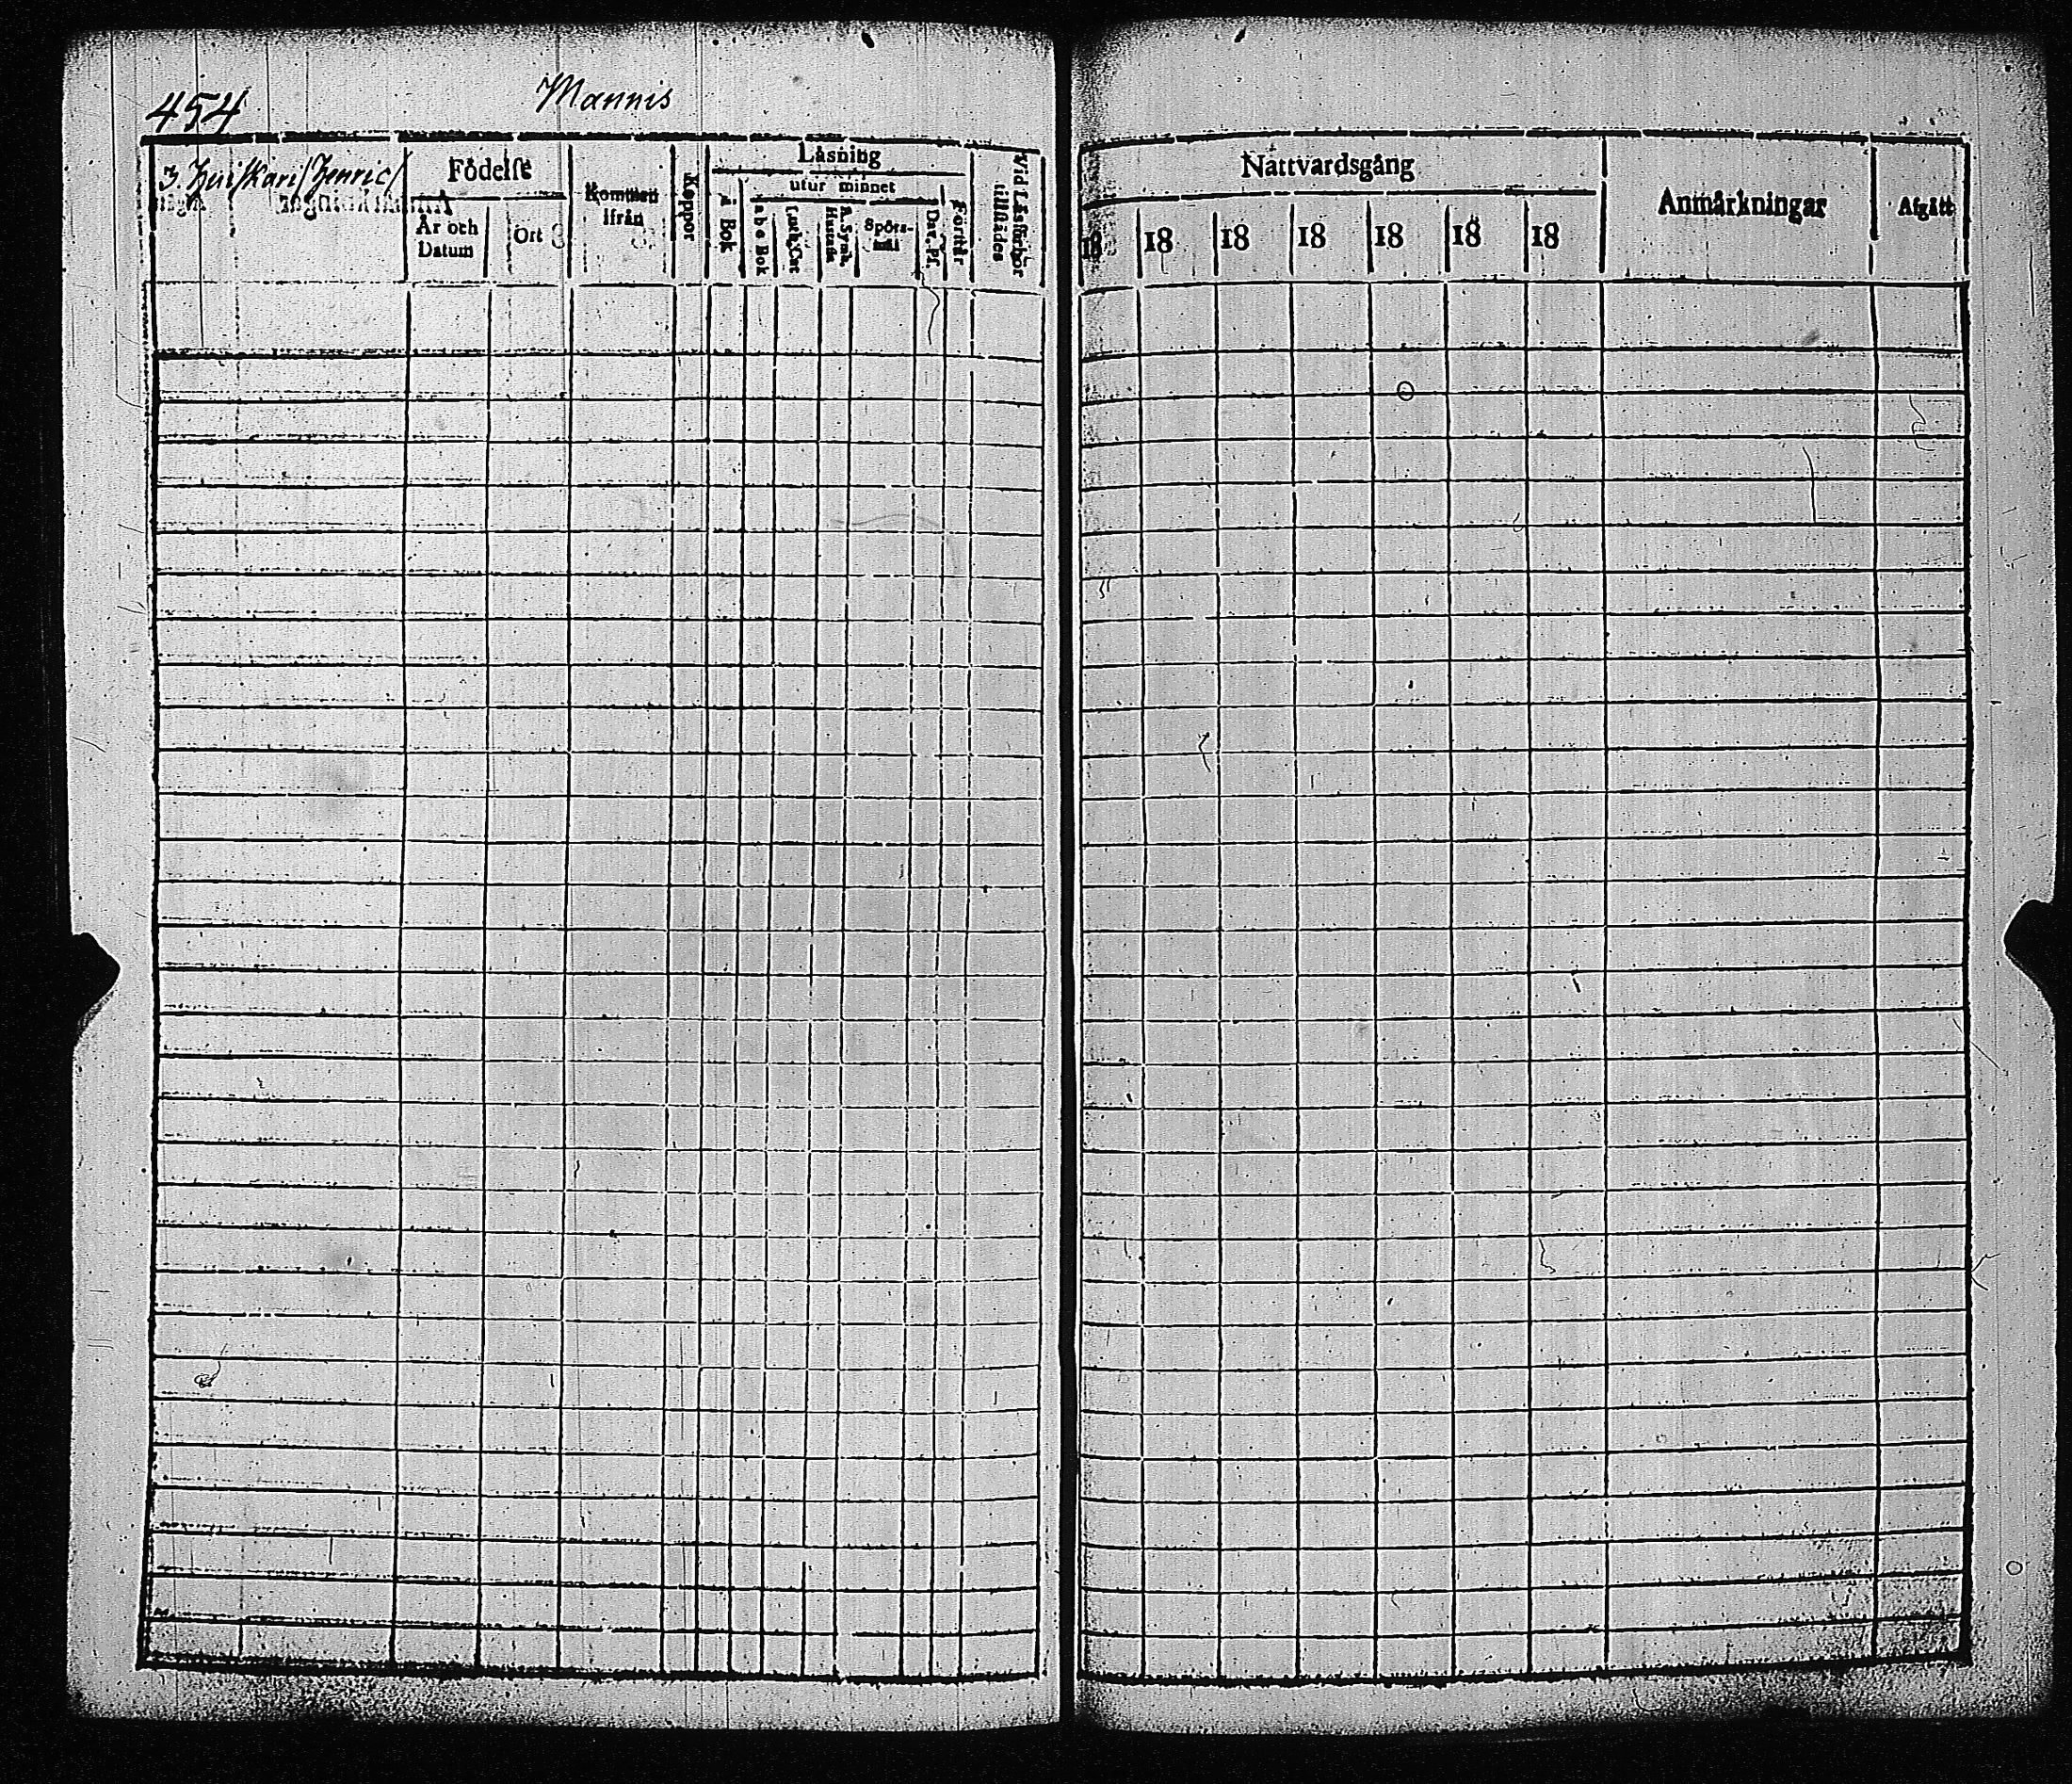 454
Mannis
3. Huiskari/Henric/
Födelse
År och
Datum
Ort
Kommen
ifrån
Koppor
Läsning
i Bok
utur minnet
a b c Bok
Luth. Cat
A. Symb.
Hustafla
Spörs-
mål
Dav. Ps.
Förstår
Vid Läsförhör
tillstädes
Nattvardsgång
18
18
18
18
18
18
18
Anmärkningar
Afgått